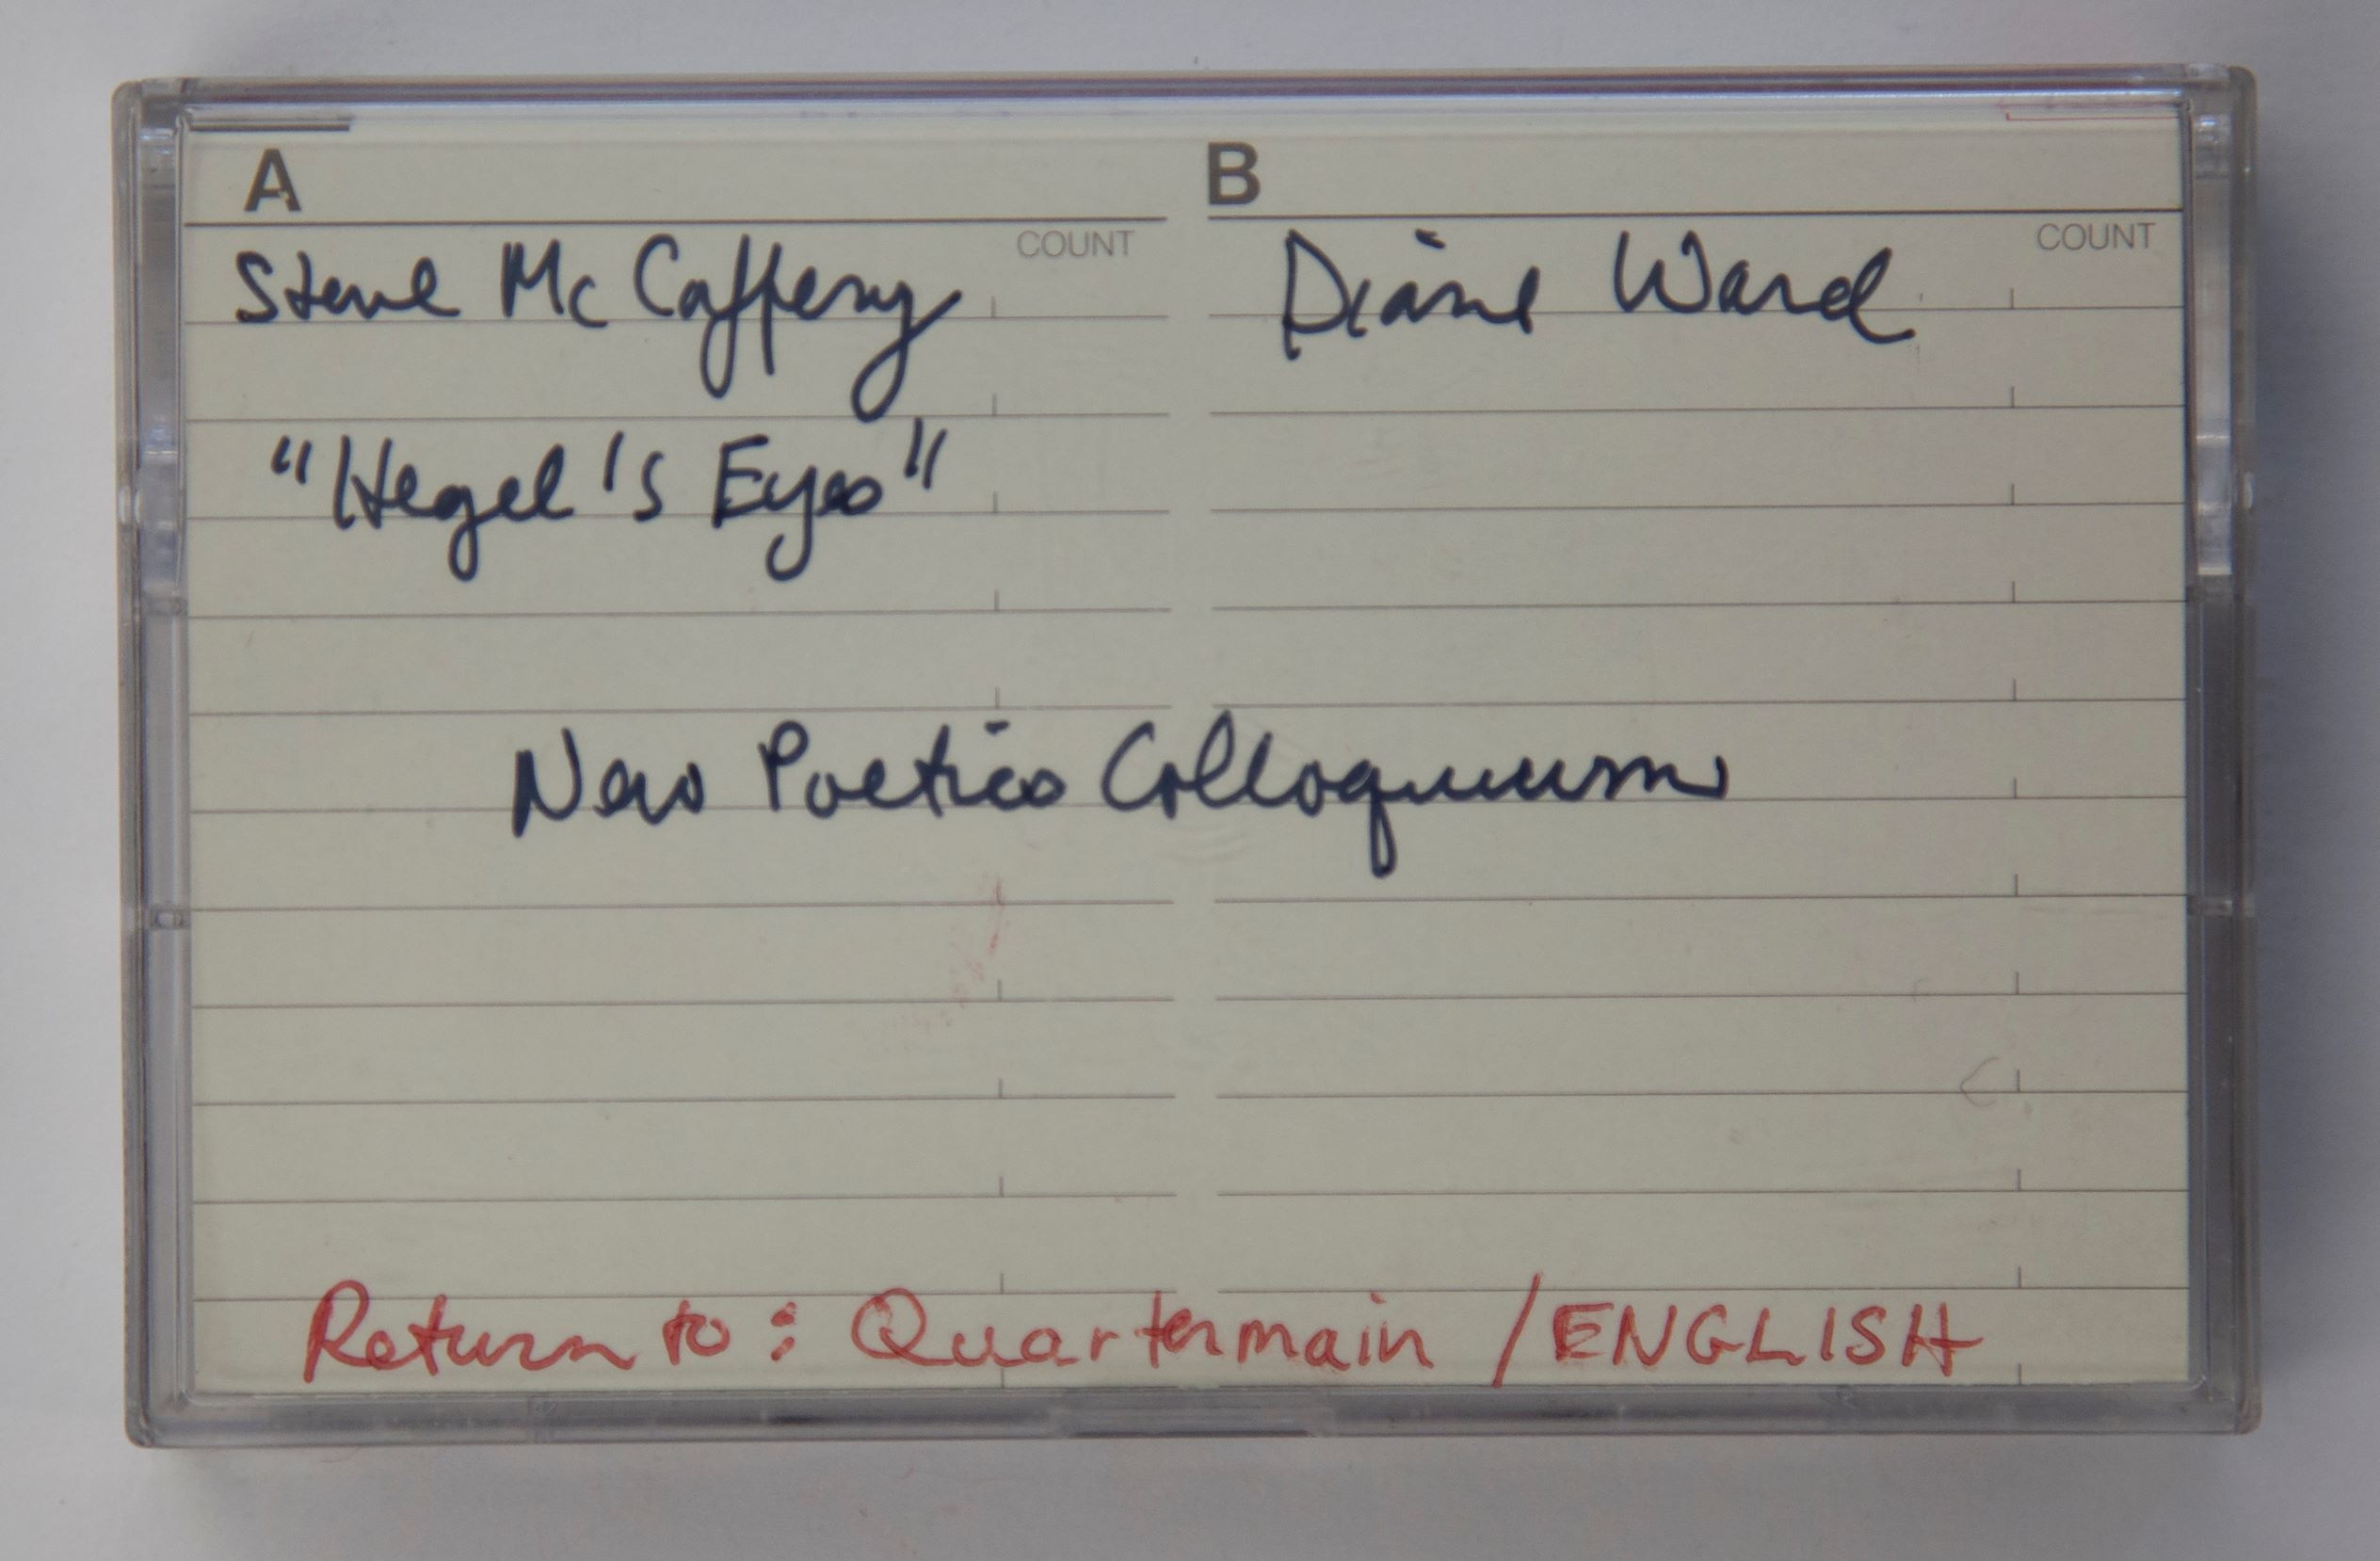 A
COUNT
Steve McCaffery
"Hegel's Eyes"
B
COUNT
Diane Ward
New Poetics Colloquium
Return to: Quartermain / ENGLISH